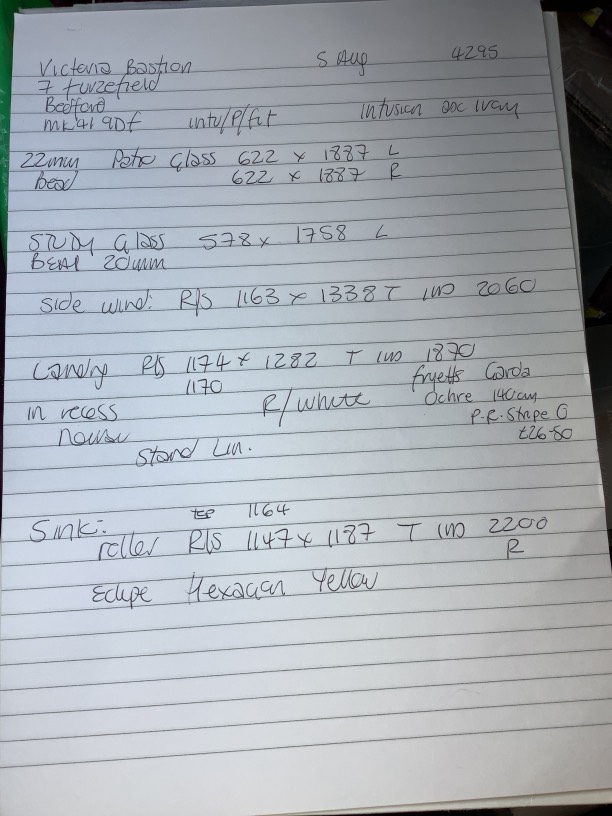 Victoria Bastion 5 Aug 4295
7 Furzefield
Bedford
MK41 9DF intu/P/fit Infusion asc Ivory
22mm Patio Glass 622 x 1887 L
Bead 622 x 1887 R
STUDY Glass 578 x 1758 L
BEAD 20mm
Side wind: R/S 1163 x 1338 T IWO 2060
Landing R/S 1174 x 1282 T IWO 1870
1170 Fryetts Garda
in recess R/White Ochre 140cm
narrow P.R. Stripe G
Stand Lin. £26-50
top 1164
Sink:
roller R/S 1147 x 1187 T IWO 2200
R
Eclipe Hexagan Yellow